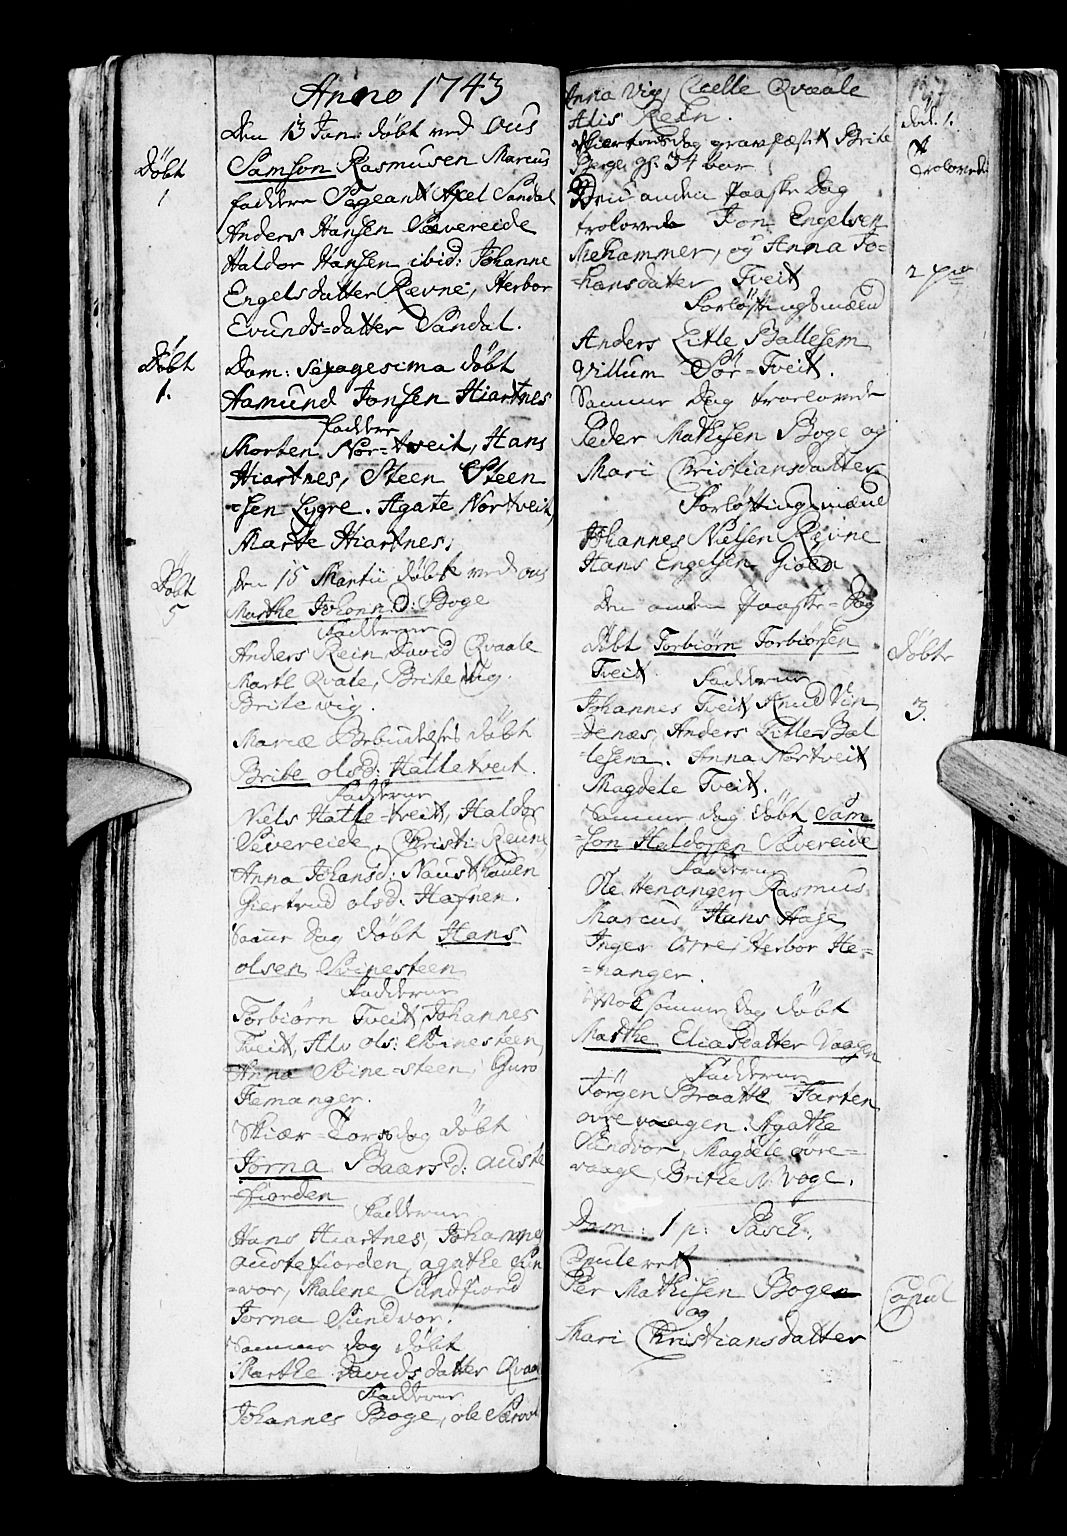 Anno 1743
Den 13 Jan: døbt ved ous
Døbt
1
Samson Rasmusen Marcus
faddere Sergeant Axel Sandal
Anders Hansen Sævereide
Haldor Hansen ibid: Johanne
Engelsdatter Røvne, Herbor
Evunds=datter Sandal.
Døbt
1.
Dom: sexagesima døbt
Aamund Jonsen Hiartnes
faddere
Morten Nor=tveit, Hans
Hiartnes, Steen Steen
=sen Lygre. Agate Nortveit,
Marte Hiartnes,
Døbt
5
den 15 Martii døbt ved ous
Marthe Johann.D: Boge
Faddere
Anders Rein, David Qvaale
Martl Qvale, Brite Vig.
Brite vig.
Mariæ døbt
Brite olsd: Hattetveit.
Faddere
Niels Hatle=tveit, Haldor
Sævereide, Christi Reune,
Anna Johansd: Nausthauen
Giertrud olsd: Hafnen.
Samme dag døbt Hans
olsen Svinesteen
Faddere
Torbiørn Tveit, Johannes
Tveit, Alv ols: Svinesteen,
Anna Svine=steen, Guro
Femanger.
Skiær=Torsdag døbt
Jorna Baars d: auste
=fiorden
Faddere
Hans Hiartnes, Johannes
austefiorden, agathe Sun
=vor, Malene Sundfiord
Jorna Sundvor.
Samme dag døbt
Marthe Davidsdatter Qvaa
Faddere
Johannes Boge, ole Særvol
Anna Vig, Cælle Qvaale
Alis Rein.
Skiertorsdag Brite
Berge gl: 34 aar
død. 1.
trolovede
Den anden Paaske Dag
trolovede Jon Engelsen
Mehammer, og Anna Jo=
=hansdatter Tveit
2 par
Forløftingsmænd
Anders Litle Ballesem
Villum Sør=Tveit.
Samme Dag troelovede
Peder Mathisen Boge og
Mari Christiansdatter
Forløftingsmænd
Johannes Nielsen Røvne
Hans Engelsen Gioen
den anden Paaske=Dag
døbt Torbiørn Torbiørsen
Tveit
Døbte
3.
Faddere
Johannes Tveit Knud Vin
=denæs, Anders Litle Bal
=lesem. Anna Nortveit
Magdele Tveit.
Samme dag døbt Sam
=son Haldorsen Sævereide
Faddere
Ole Henanger, Rasmus
Marcus, Hans Hage,
Inger Orre, Herbor He=
=nanger.
Nok samme dag døbt
Marthe Eliasdatter Vaagen
Faddere
Jørgen Braatte, Tarten
ovre vaagen. Agathe
Sundvor, Magdele øvre=
vaage, Brithe N: voge.
Dom: 1 p: Pasch.
Copuleret
Per Mathisen Bogen
og
Mari Christiansdatter
Copul